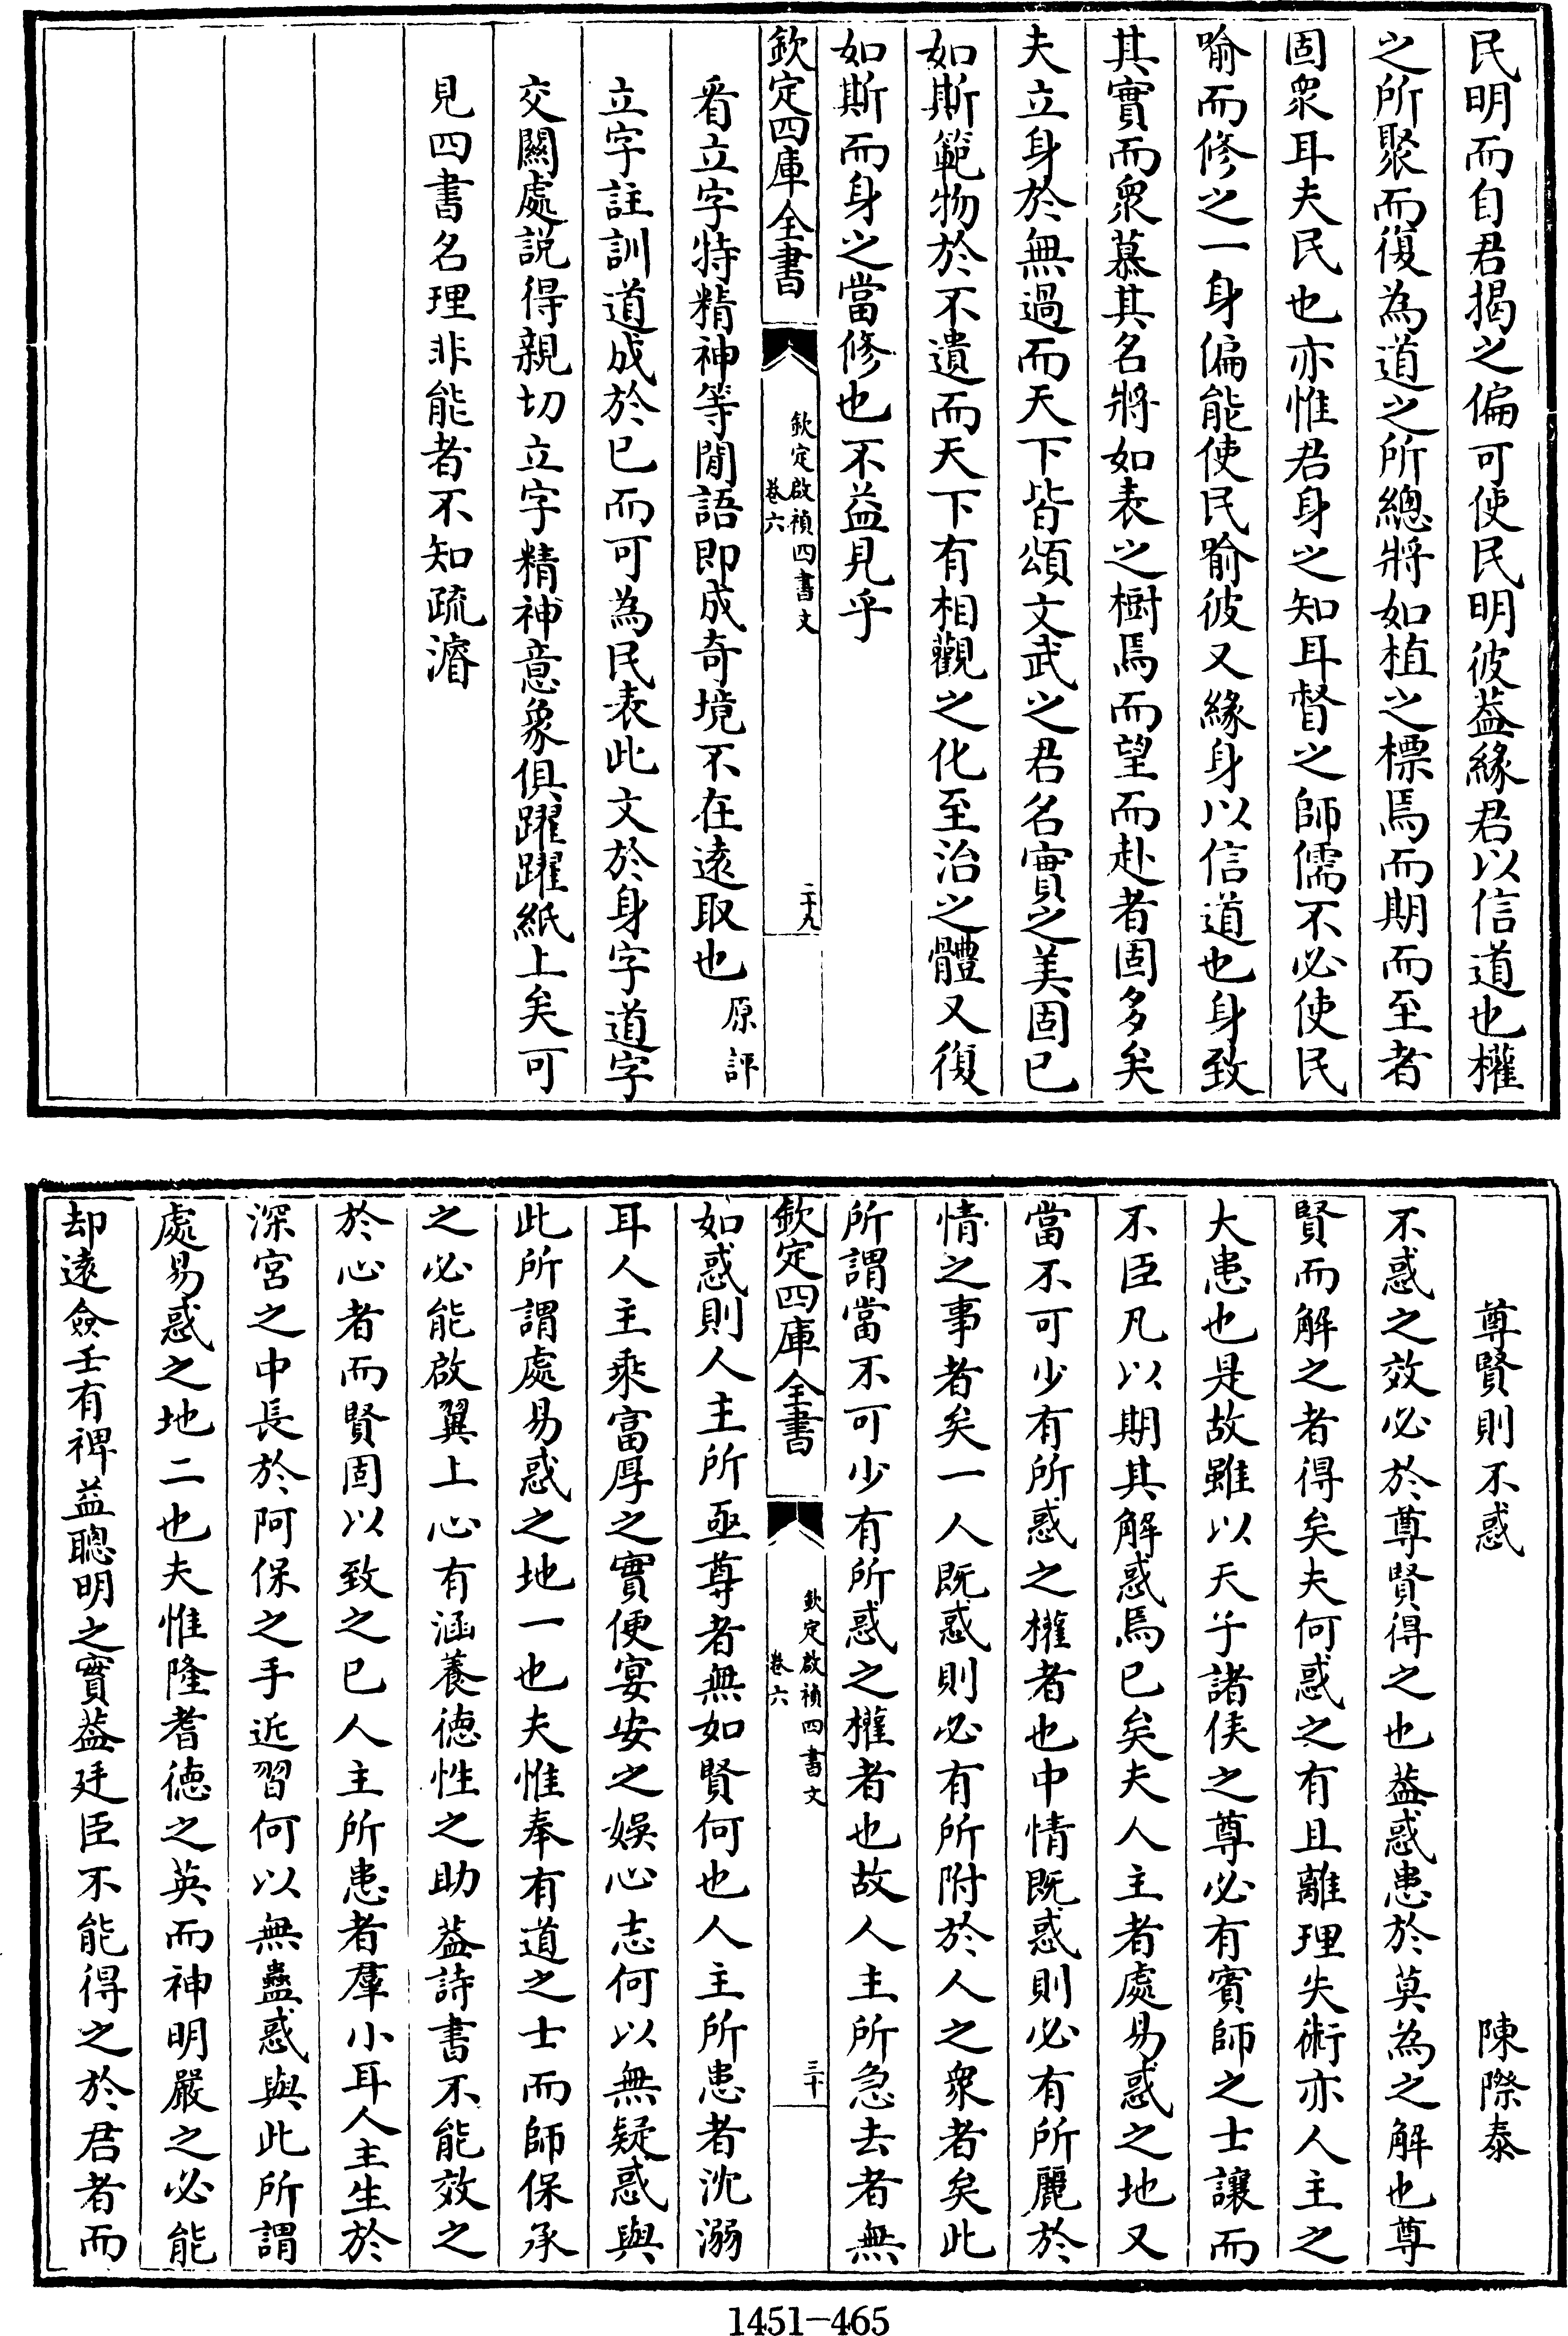 民明而自君揭之偏可使民明彼葢緣君以信道也權
之所聚而復為道之所總將如植之標焉而期而至者
固衆耳夫民也亦惟君身之知耳督之師儒不必使民
喻而修之一身偏能使民喻彼又緣身以信道也身致
其實而衆慕其名將如表之樹焉而望而赴者固多矣
夫立身於無過而天下皆頌文武之君名實之美固已
如斯範物於不遺而天下有相觀之化至治之體又復
如斯而身之當修也不益見乎
欽定四庫全書
欽定啟禎四書文
卷六
二十九
看立字特精神等閒語即成奇境不在遠取也 原評
立字註訓道成於已而可為民表此文於身字道字
交關處説得親切立字精神意象俱躍躍紙上矣可
見四書名理非能者不知疏濬
尊賢則不惑 陳際泰
不惑之效必於尊賢得之也葢惑患於莫為之解也尊
賢而解之者得矣夫何惑之有且離理失術亦人主之
大患也是故雖以天子諸侯之尊必有賓師之士讓而
不臣凡以期其解惑焉已矣夫人主者處易惑之地又
當不可少有所惑之權者也中情既惑則必有所麗於
情之事者矣一人既惑則必有所附於人之衆者矣此
所謂當不可少有所惑之權者也故人主所急去者無
欽定四庫全書
欽定啟禎四書文
卷六
三十
如惑則人主所亟尊者無如賢何也人主所患者沈溺
耳人主乘富厚之實便宴安之娛心志何以無疑惑與
此所謂處易惑之地一也夫惟奉有道之士而師保承
之必能啟翼上心有涵養德性之助葢詩書不能效之
於心者而賢固以致之已人主所患者羣小耳人主生於
深宮之中長於阿保之手近習何以無蠱惑與此所謂
處易惑之地二也夫惟隆耆德之英而神明嚴之必能
却遠僉壬有裨益聰明之實葢廷臣不能得之於君者而
1451-465